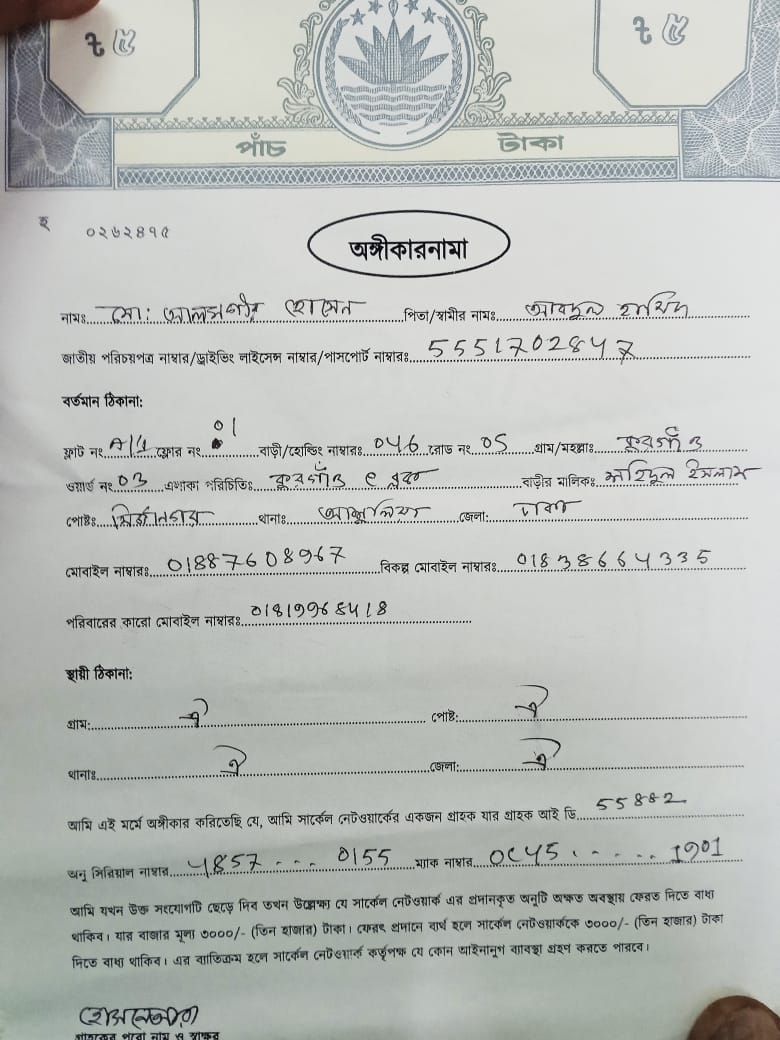 ৳ ৫ ৳ ৫
পাঁচ টাকা
হ ০২৬২৪৭৫
অঙ্গীকারনামা
নামঃ মো: আলমগীর হোসেন পিতা/স্বামীর নামঃ আবদুল হামিদ
জাতীয় পরিচয়পত্র নাম্বার/ড্রাইভিং লাইসেন্স নাম্বার/পাসপোর্ট নাম্বারঃ 5551702847
বর্তমান ঠিকানা:
ফ্লাট নং A/1 ফ্লোর নং 01 বাড়ী/হোল্ডিং নাম্বারঃ 046 রোড নং 05 গ্রাম/মহল্লাঃ কুরগাঁও
ওয়ার্ড নং 03 এলাকা পরিচিতিঃ কুরগাঁও e ব্লক বাড়ীর মালিকঃ শহিদুল ইসলাম
পোষ্টঃ মির্জানগর থানাঃ আশুলিয়া জেলা: ঢাকা
মোবাইল নাম্বারঃ 01887608967 বিকল্প মোবাইল নাম্বারঃ 01838664335
পরিবারের কারো মোবাইল নাম্বারঃ 01819968418
স্থায়ী ঠিকানা:
গ্রাম: ঐ পোষ্ট: ঐ
থানাঃ ঐ জেলা: ঐ
আমি এই মর্মে অঙ্গীকার করিতেছি যে, আমি সার্কেল নেটওয়ার্কের একজন গ্রাহক যার গ্রাহক আই ডি 55882
অনু সিরিয়াল নাম্বার 4857... 0155 ম্যাক নাম্বার 0C45..... 1901
আমি যখন উক্ত সংযোগটি ছেড়ে দিব তখন উল্লেক্ষ্য যে সার্কেল নেটওয়ার্ক এর প্রদানকৃত অনুটি অক্ষত অবস্থায় ফেরত দিতে বাধ্য
থাকিব। যার বাজার মূল্য ৩০০০/- (তিন হাজার) টাকা। ফেরৎ প্রদানে ব্যর্থ হলে সার্কেল নেটওয়ার্ককে ৩০০০/- (তিন হাজার) টাকা
দিতে বাধ্য থাকিব। এর ব্যতিক্রম হলে সার্কেল নেটওয়ার্ক কর্তৃপক্ষ যে কোন আইনানুগ ব্যাবস্থা গ্রহণ করতে পারবে।
হোসনেআরা
গ্রাহকের পুরো নাম ও স্বাক্ষর